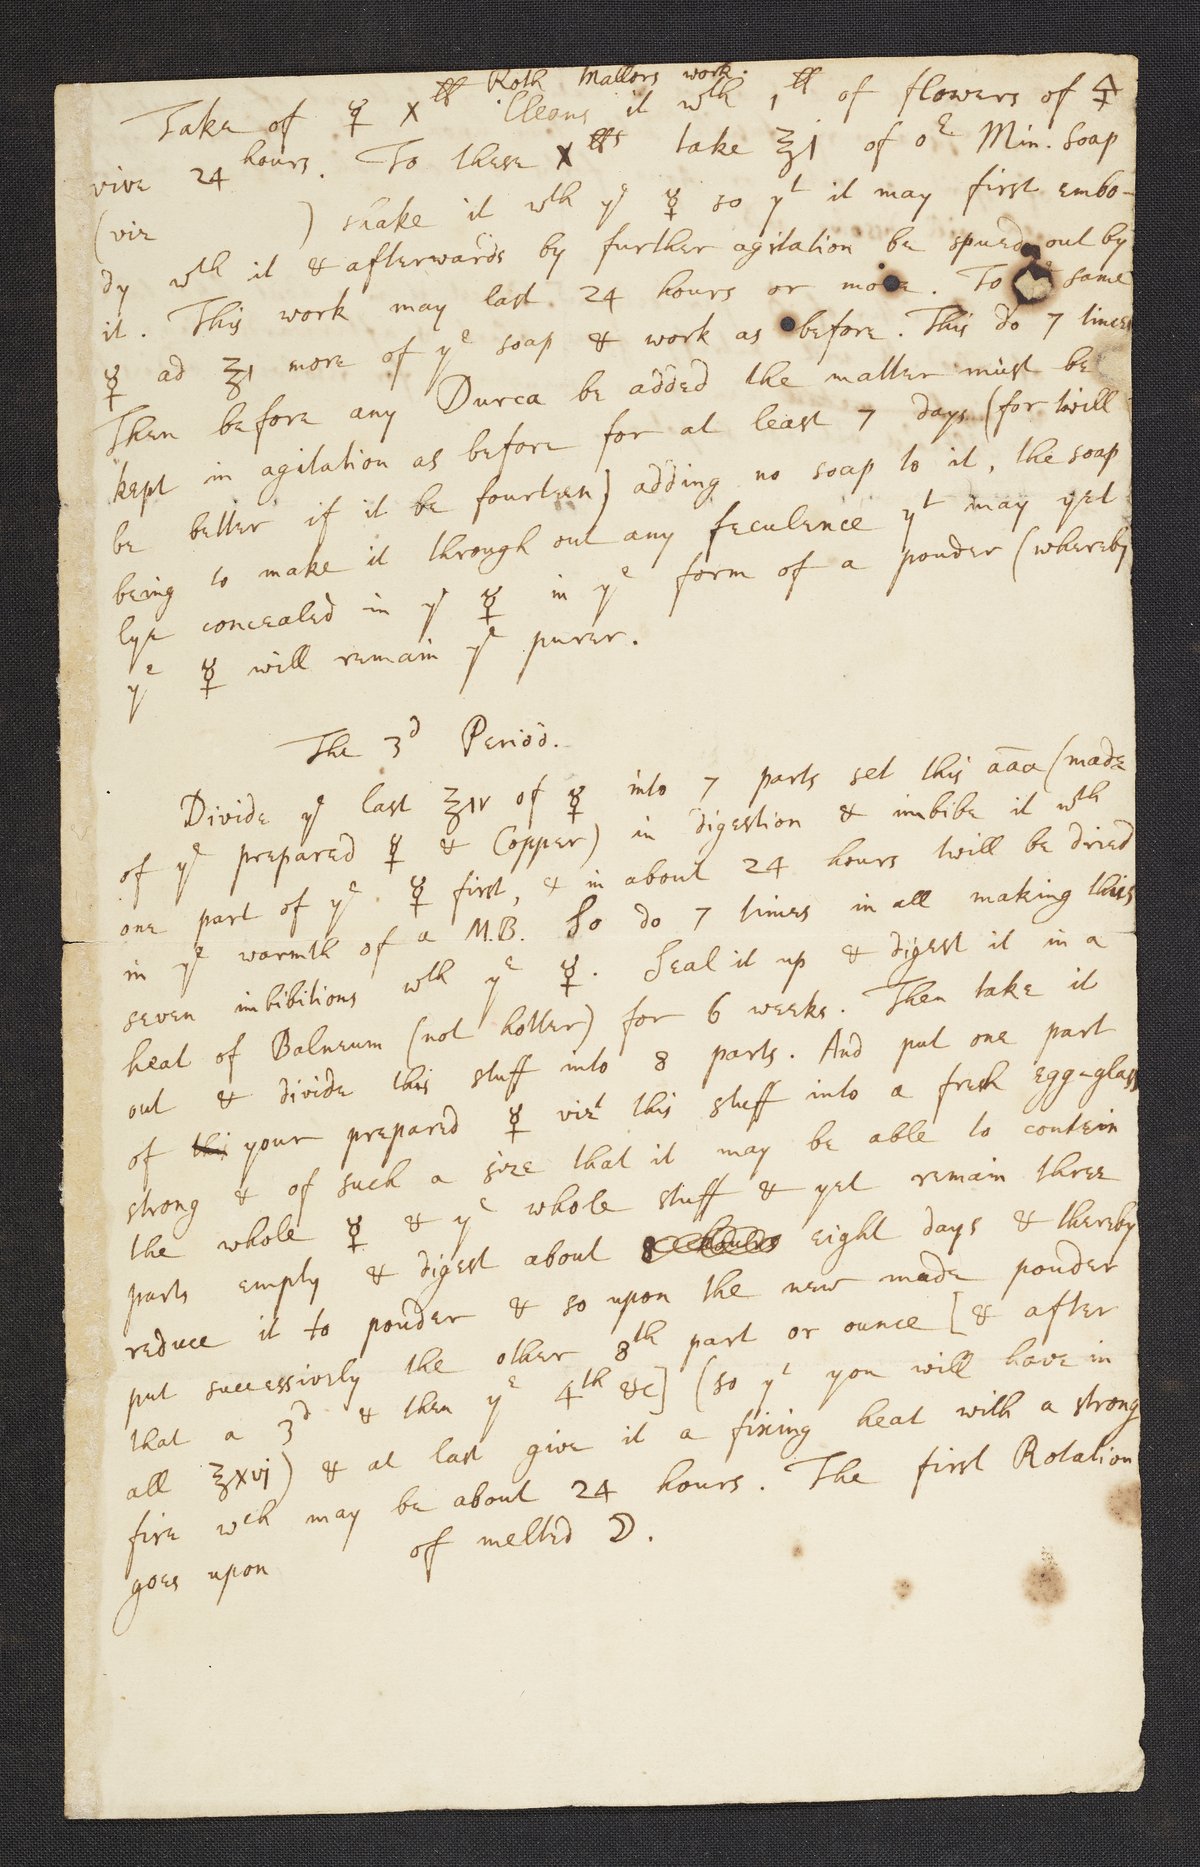 Roth Mallors work.
Take of ☿ X ℔ Cleans it wth 1 ℔ of flowers of 🜍
vive 24 hours. To these X ℔s take ℥1 of oe Min. Soap
(viz ) shake it wth ye ☿ so yt it may first embo-
dy wth it & afterwards by further agitation be spued out by
it. This work may last 24 hours or more. To same
☿ ad ℥1 more of ye soap & work as before. This do 7 times
Then before any Durca be added the matter must be
kept in agitation as before for at least 7 days (for twill
be better if it be fourteen) adding no soap to it, the soap
being to make it through out any feculence yt may yet
lye concealed in ye ☿ in ye form of a pouder (whereby
ye ☿ will remain ye purer.
The 3d Period.
Divide ye last ℥iv of ☿ into 7 parts set this āāa (made
of ye prepared ☿ & Copper) in digestion & imbibe it wth
one part of ye ☿ first, & in about 24 hours twill be dried
in ye warmth of a M.B. So do 7 times in all making this
seven imbibitions wth ye ☿. Seal it up & digest it in a
heat of Balneum (not hotter) for 6 weeks. Then take it
out & divide this stuff into 8 parts. And put one part
of thi your prepared ☿ vizt this stuff into a fresh egg-glass
strong & of such a size that it may be able to contein
the whole ☿ & ye whole stuff & yet remain three
parts empty & digest about 8 hours eight days & thereby
reduce it to pouder & so upon the new made pouder
put successively the other 8th part or ounce [& after
that a 3d & then ye 4th &c] (so yt you will have in
all ℥xvj) & at last give it a fixing heat with a strong
fire wch may be about 24 hours. The first Rotation
goes upon of melted ☽.